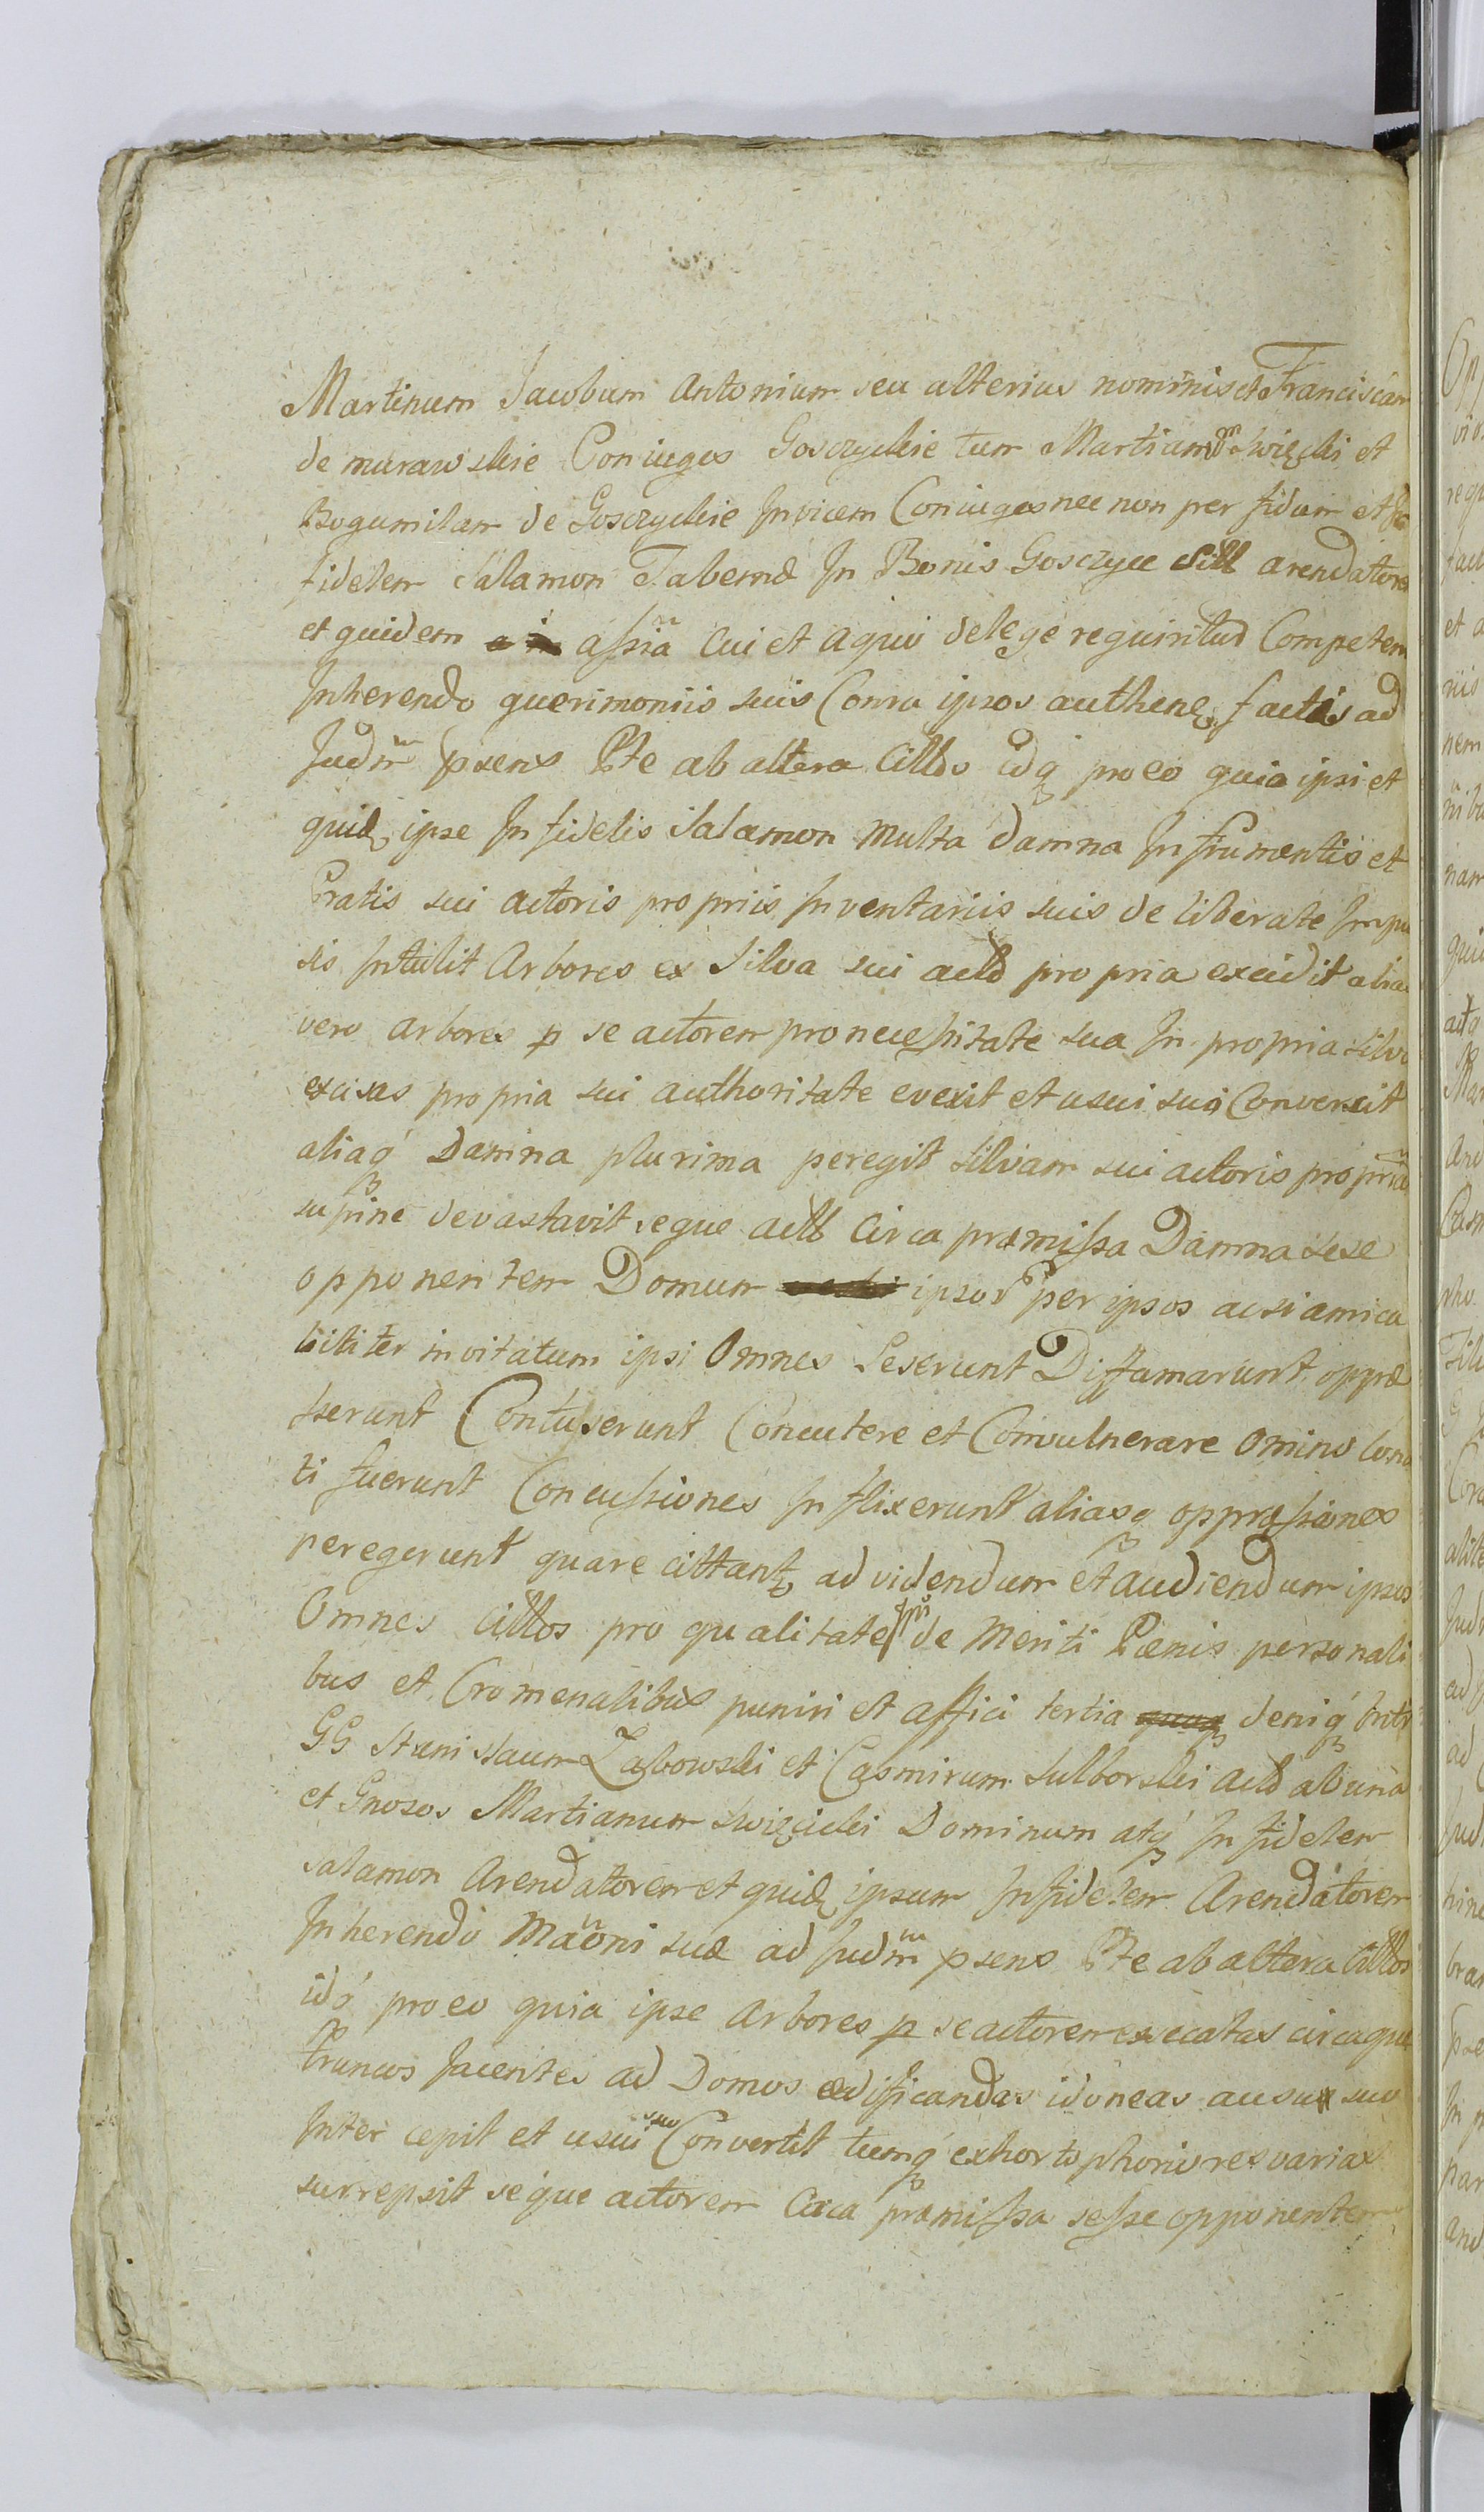 Martinum Jacobum Antonium seu alterius nominis et Franciscam
de murawskie Coniuges Gosczyckie tum Martianum Swięcki et
Bogumilam de Gosczyckie Invicem Coniuges nec non per fidum et
fidelem Salamon Tabernæ In Bonis Gosczyce Sitt arendatorem
et quidem assiã Cui et a quo de lege requiritur Competem
Inherendo querimoniis suis Conra ipsos authenę factis ad
Judm̃ pxens Pte ab altera Citto idq proeo quia ipsi et
quidę ipse Infidelis Salamon Multa damna In frumentis et
Pratis sui actoris propriis Inventariis suis deliberate Impu
sis Intulit Arbores ex Silva sui actõ propria excidit alias
vero arbores p se actorem pro necessitate sua In propria silva
excisas propria sui authoritate evexit et usui suo Conversit
aliaq Damna plurima peregit Silvam sui actoris propriã
supine devastavit seque actõ Circa præmissa Damna sese
opponentem Domum ipsor per ipsos ac si amica
biliter invitatum ipsi Omnes Leserunt Diffamarunt oppræ
sserunt Contuserunt Concutere et Convulnerare Omino Cona
ti fuerunt Concussiones Inflixerunt aliasq oppræssiones
peregerunt quare cittantę ad videndum et audiendum ipsos
Omnes Cittos pro qualitate de Meriti Pœnis personali
bus et Cromenalibus puniri et affici tertia denię Intr
GG Stanislaum Zabowski et Casmirum Sulborski actõ ab una
et Gnosos Martianum Swięcicki Dominum atq Infidelem
Salamon Arendatorem et quidę ipsum Infidelem Arendatorem
Inherendo Mãoni suæ ad Judm̃ pxens Pte ab altera Cittos
idq proeo quia ipse Arbores p se actorem exsecatas circaque
truncos Jacentes ad Domos ædificandas idoneas ausu suo
Inter cepit et usui suo Convertit tumq ex horto phoris res varias
surrepsit seque actorem Circa præmissa sesse opponentem